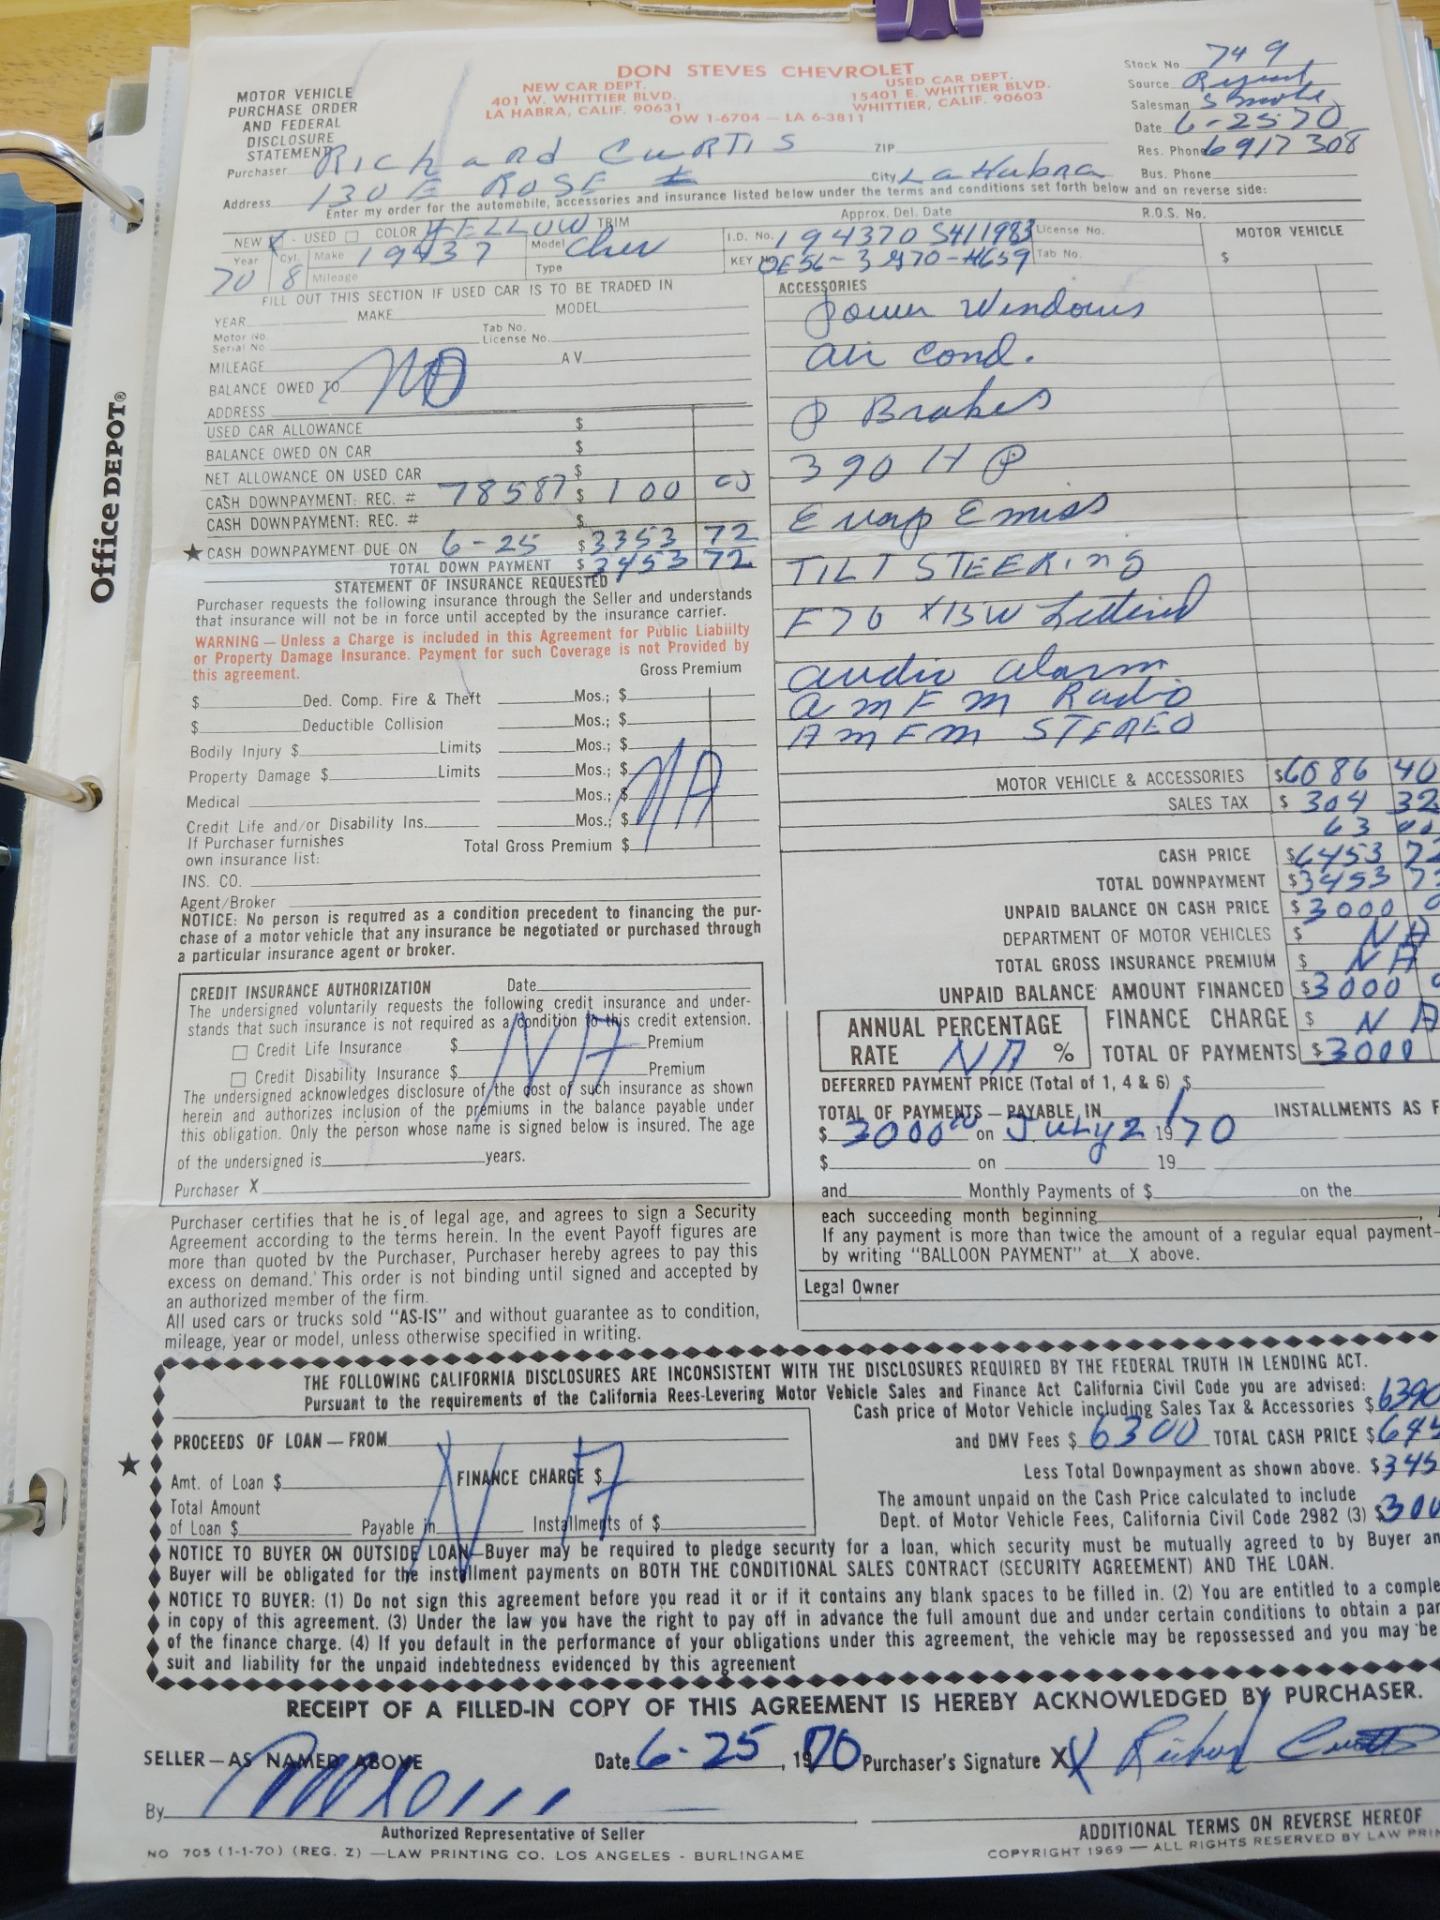 DON STEVES CHEVROLET
NEW CAR DEPT.
401 W. WHITTIER BLVD.
LA HABRA, CALIF. 90631
USED CAR DEPT.
15401 E. WHITTIER BLVD.
WHITTIER, CALIF. 90603
OW 1-6704 — LA 6-3811
MOTOR VEHICLE
PURCHASE ORDER
AND FEDERAL
DISCLOSURE
STATEMENT
Stock No 749
Source
Salesman
Date 6-25-70
Res. Phone 6917308
Bus. Phone
Purchaser Richard CURTIS ZIP
Address 130 E ROSE City La Habra
Enter my order for the automobile, accessories and insurance listed below under the terms and conditions set forth below and on reverse side:
NEW X - USED □ COLOR YELLOW TRIM
Approx. Del. Date
R.O.S. No.
Year 70 Cyl. 8 Make 19437 Model Chev
Mileage Type
I.D. No. 194370S411983 License No.
KEY No. Tab No.
MOTOR VEHICLE $
FILL OUT THIS SECTION IF USED CAR IS TO BE TRADED IN
YEAR MAKE MODEL
Motor No. Tab No.
Serial No. License No.
MILEAGE A V
BALANCE OWED TO NO
ADDRESS
USED CAR ALLOWANCE $
BALANCE OWED ON CAR $
NET ALLOWANCE ON USED CAR $
CASH DOWNPAYMENT: REC. # 78587 $ 100 00
CASH DOWNPAYMENT: REC. # $
★ CASH DOWNPAYMENT DUE ON 6-25 $ 3353 72
TOTAL DOWN PAYMENT $ 3453 72
STATEMENT OF INSURANCE REQUESTED
Purchaser requests the following insurance through the Seller and understands
that insurance will not be in force until accepted by the insurance carrier.
WARNING — Unless a Charge is included in this Agreement for Public Liabiilty
or Property Damage Insurance. Payment for such Coverage is not Provided by
this agreement. Gross Premium
$ Ded. Comp. Fire & Theft Mos.; $
$ Deductible Collision Mos.; $
Bodily Injury $ Limits Mos.; $
Property Damage $ Limits Mos.; $
Medical Mos.; $
Credit Life and/or Disability Ins. Mos.; $
NA
If Purchaser furnishes Total Gross Premium $
own insurance list:
INS. CO.
Agent/Broker
NOTICE: No person is required as a condition precedent to financing the pur-
chase of a motor vehicle that any insurance be negotiated or purchased through
a particular insurance agent or broker.
CREDIT INSURANCE AUTHORIZATION Date
The undersigned voluntarily requests the following credit insurance and under-
stands that such insurance is not required as a condition to this credit extension.
□ Credit Life Insurance $ Premium
NA
□ Credit Disability Insurance $ Premium
The undersigned acknowledges disclosure of the cost of such insurance as shown
herein and authorizes inclusion of the premiums in the balance payable under
this obligation. Only the person whose name is signed below is insured. The age
of the undersigned is years.
Purchaser X
Purchaser certifies that he is of legal age, and agrees to sign a Security
Agreement according to the terms herein. In the event Payoff figures are
more than quoted by the Purchaser, Purchaser hereby agrees to pay this
excess on demand. This order is not binding until signed and accepted by
an authorized member of the firm.
All used cars or trucks sold "AS-IS" and without guarantee as to condition,
mileage, year or model, unless otherwise specified in writing.
ACCESSORIES
Power Windows
Air Cond.
P Brakes
390 HP
Evap Emiss
TILT STEERING
F70 X15W Lettered
Audio Alarm
AMFM Radio
AMFM STEREO
MOTOR VEHICLE & ACCESSORIES $6086 40
SALES TAX $ 304 32
63 00
CASH PRICE $6453 72
TOTAL DOWNPAYMENT $3453 7
UNPAID BALANCE ON CASH PRICE $ 3000 0
DEPARTMENT OF MOTOR VEHICLES $ NA
TOTAL GROSS INSURANCE PREMIUM $ NA
UNPAID BALANCE AMOUNT FINANCED $3000 0
ANNUAL PERCENTAGE
RATE NA %
FINANCE CHARGE $ NA
TOTAL OF PAYMENTS $3000
DEFERRED PAYMENT PRICE (Total of 1, 4 & 6) $
TOTAL OF PAYMENTS — PAYABLE IN 1 INSTALLMENTS AS F
$ 3000 00 on July 2 19 70
$ on 19
and Monthly Payments of $ on the
each succeeding month beginning
If any payment is more than twice the amount of a regular equal payment
by writing "BALLOON PAYMENT" at X above.
Legal Owner
THE FOLLOWING CALIFORNIA DISCLOSURES ARE INCONSISTENT WITH THE DISCLOSURES REQUIRED BY THE FEDERAL TRUTH IN LENDING ACT.
Pursuant to the requirements of the California Rees-Levering Motor Vehicle Sales and Finance Act California Civil Code you are advised:
Cash price of Motor Vehicle including Sales Tax & Accessories $6390
and DMV Fees $ 6300 TOTAL CASH PRICE $645
Less Total Downpayment as shown above. $345
The amount unpaid on the Cash Price calculated to include
Dept. of Motor Vehicle Fees, California Civil Code 2982 (3) $300
PROCEEDS OF LOAN — FROM
★ Amt. of Loan $ FINANCE CHARGE $
NA
Total Amount
of Loan $ Payable in Installments of $
NOTICE TO BUYER ON OUTSIDE LOAN—Buyer may be required to pledge security for a loan, which security must be mutually agreed to by Buyer an
Buyer will be obligated for the installment payments on BOTH THE CONDITIONAL SALES CONTRACT (SECURITY AGREEMENT) AND THE LOAN.
NOTICE TO BUYER: (1) Do not sign this agreement before you read it or if it contains any blank spaces to be filled in. (2) You are entitled to a comple
in copy of this agreement. (3) Under the law you have the right to pay off in advance the full amount due and under certain conditions to obtain a par
of the finance charge. (4) If you default in the performance of your obligations under this agreement, the vehicle may be repossessed and you may be
suit and liability for the unpaid indebtedness evidenced by this agreement
RECEIPT OF A FILLED-IN COPY OF THIS AGREEMENT IS HEREBY ACKNOWLEDGED BY PURCHASER.
SELLER—AS NAMED ABOVE Date 6-25, 1970 Purchaser's Signature X Richard Curtis
By
Authorized Representative of Seller
ADDITIONAL TERMS ON REVERSE HEREOF
NO 705 (1-1-70) (REG. Z) —LAW PRINTING CO. LOS ANGELES - BURLINGAME
COPYRIGHT 1969 — ALL RIGHTS RESERVED BY LAW PRIN
Office DEPOT®